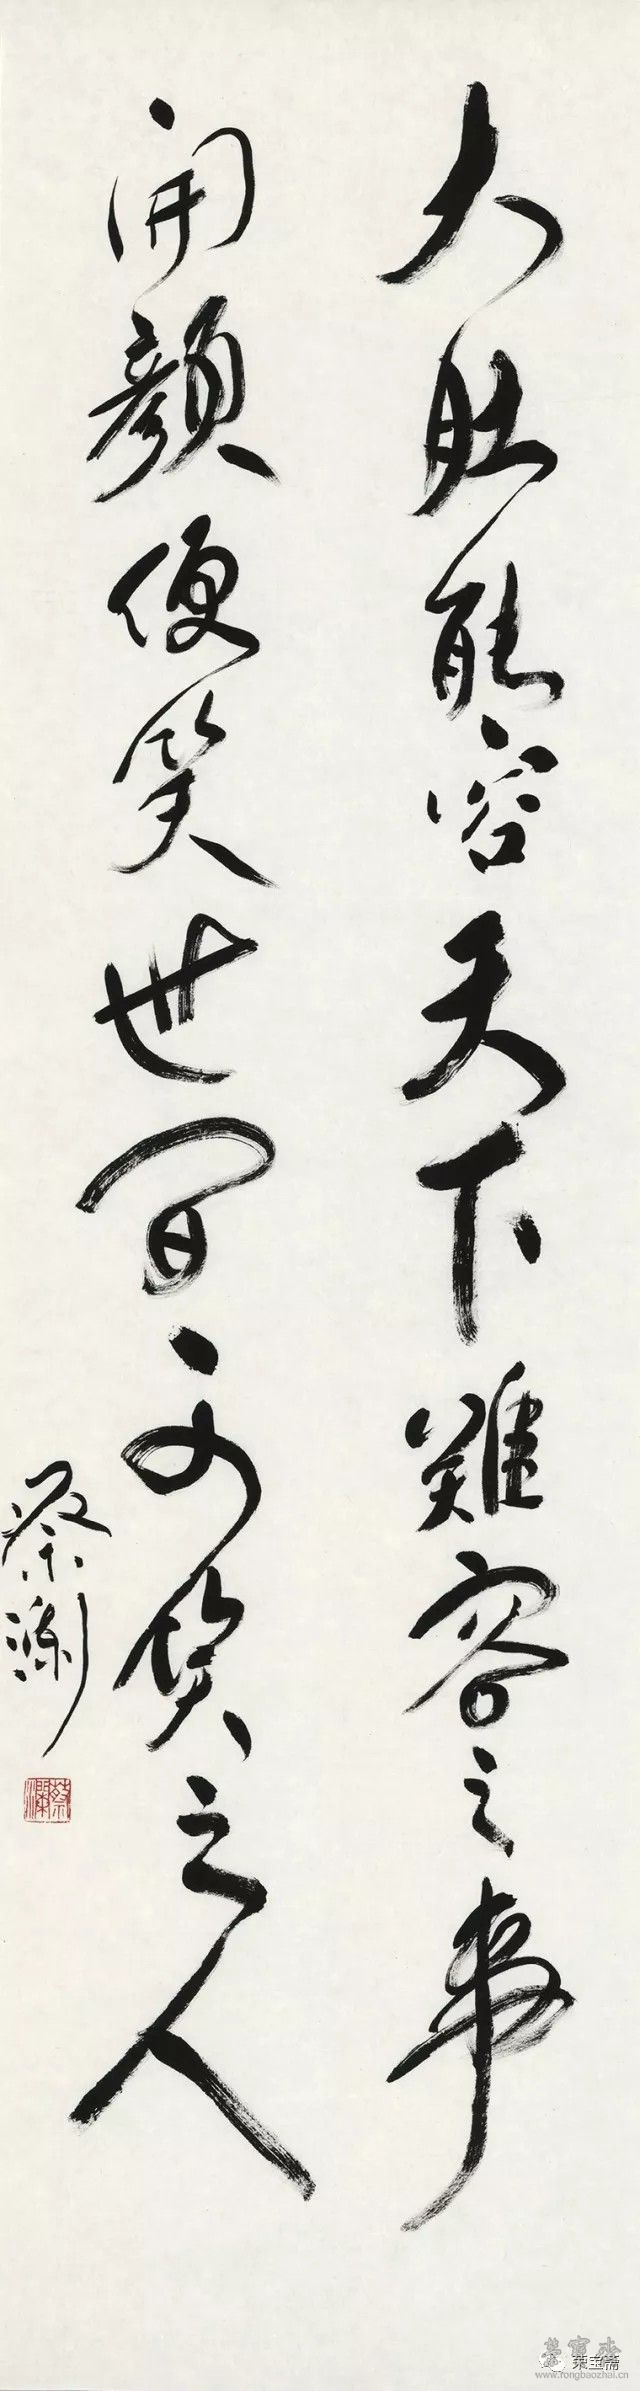 大肚能容天下難容之事
開顏便笑世间可笑之人
蔡瀾
蔡瀾
榮寶齋
荣宝斋
www.rongbaozhai.cn